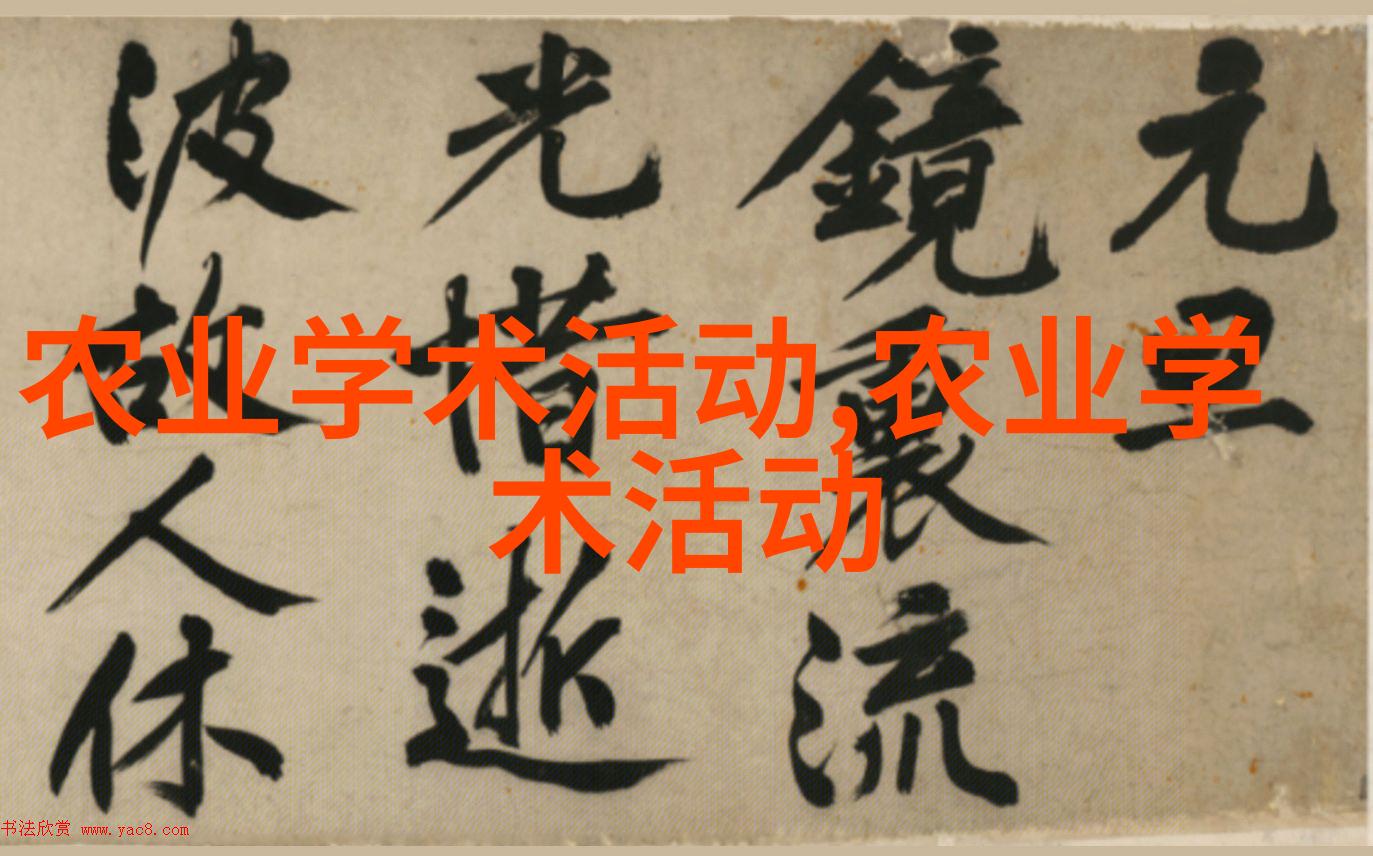 元旦
鏡裏流
光惜逝
波故人休
农业学术活动,农业学
术活动
书法欣赏 www.yac8.com